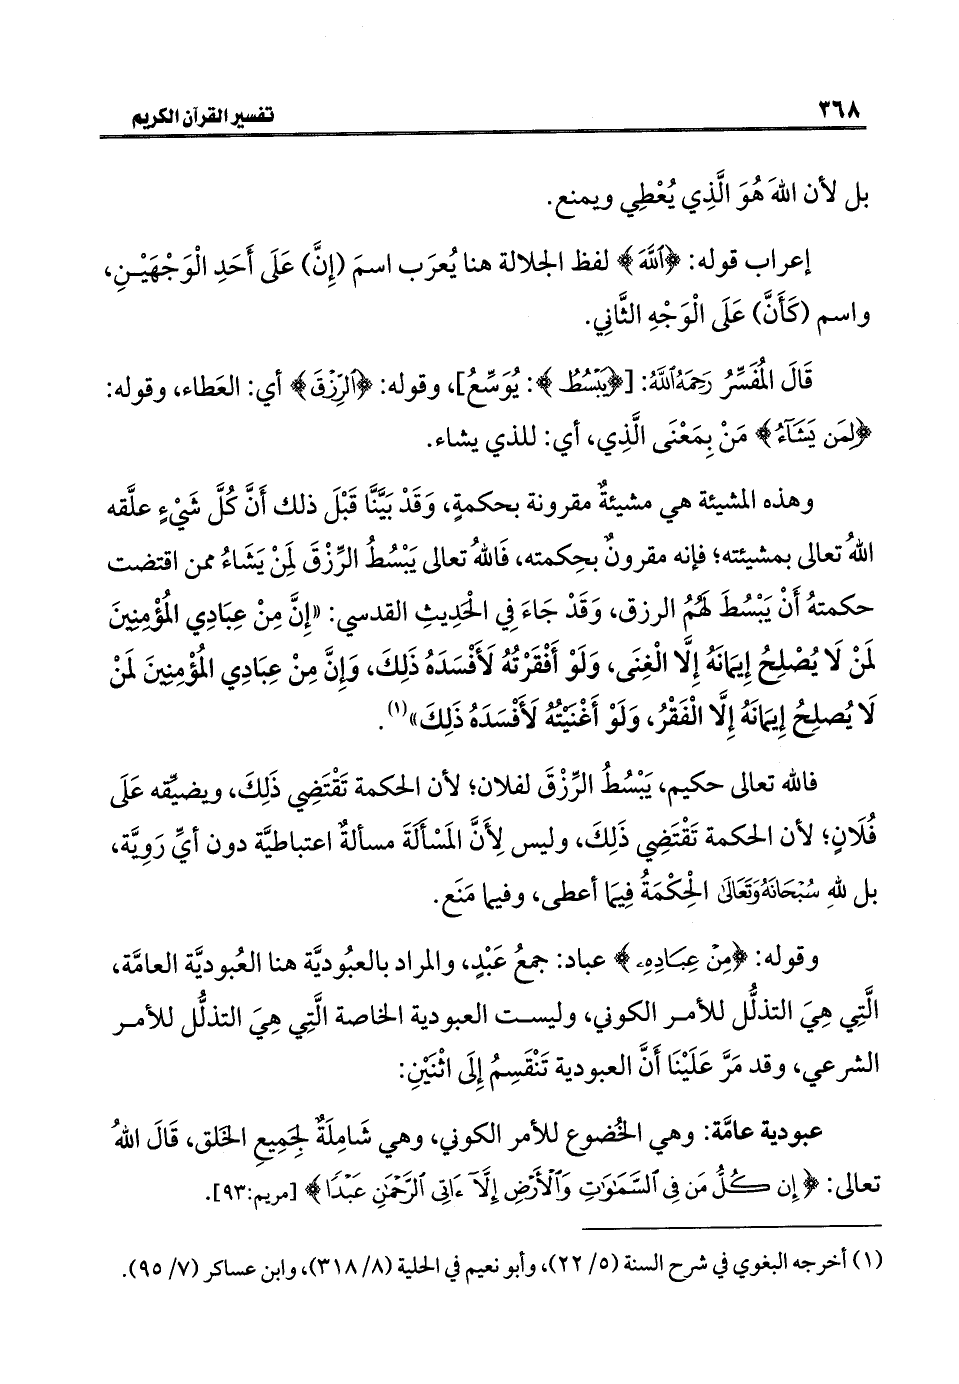 ٣٦٨ تفسير القرآن الكريم
بل لأن اللهَ هُوَ الَّذِي يُعْطِي ويمنع.
إعراب قوله: ﴿ٱللَّهَ﴾ لفظ الجلالة هنا يُعرَب اسمَ (إِنَّ) عَلَى أَحَدِ الْوَجْهَيْنِ،
واسم (كَأَنَّ) عَلَى الْوَجْهِ الثَّانِي.
قَالَ المُفَسِّرُ رَحِمَهُ اللَّهُ: [﴿يَبْسُطُ﴾: يُوَسِّعُ]، وقوله: ﴿ٱلرِّزْقَ﴾ أي: العَطاء، وقوله:
﴿لِمَن يَشَآءُ﴾ مَنْ بِمَعْنَى الَّذِي، أي: للذي يشاء.
وهذه المشيئة هي مشيئةٌ مقرونة بحكمةٍ، وَقَدْ بَيَّنَّا قَبْلَ ذلك أَنَّ كُلَّ شَيْءٍ علَّقه
اللهُ تعالى بمشيئته؛ فإنه مقرونٌ بحِكمته، فَاللهُ تعالى يَبْسُطُ الرِّزْقَ لِمَنْ يَشَاءُ ممن اقتضت
حكمتهُ أَنْ يَبْسُطَ لَهُمُ الرزق، وَقَدْ جَاءَ فِي الْحَدِيثِ القدسي: «إِنَّ مِنْ عِبَادِي المُؤْمِنِينَ
لَمَنْ لَا يُصْلِحُ إِيمَانَهُ إِلَّا الْغِنَى، وَلَوْ أَفْقَرْتُهُ لَأَفْسَدَهُ ذَلِكَ، وَإِنَّ مِنْ عِبَادِي المُؤْمِنِينَ لَمَنْ
لَا يُصلِحُ إِيمَانَهُ إِلَّا الْفَقْرُ، وَلَوْ أَغْنَيْتُهُ لَأَفْسَدَهُ ذَلِكَ»(١).
فالله تعالى حكيم، يَبْسُطُ الرِّزْقَ لفلان؛ لأن الحكمة تَقْتَضِي ذَلِكَ، ويضيِّقه عَلَى
فُلَانٍ؛ لأن الحكمة تَقْتَضِي ذَلِكَ، وليس لِأَنَّ المَسْأَلَةَ مسألةٌ اعتباطيَّة دون أيِّ رَوِيَّة،
بل للهِ سُبْحَانَهُ وَتَعَالَى الْحِكْمَةُ فِيمَا أعطى، وفيما مَنَع.
وقوله: ﴿مِنْ عِبَادِهِۦ﴾ عباد: جمعُ عَبْدٍ، والمراد بالعبُوديَّة هنا العُبوديَّة العامَّة،
الَّتِي هِيَ التذلُّل للأمر الكوني، وليست العبودية الخاصة الَّتِي هِيَ التذلُّل للأمر
الشرعي، وقد مَرَّ عَلَيْنَا أَنَّ العبودية تَنْقَسِمُ إِلَى اثْنَيْنِ:
عبودية عامَّة: وهي الخُضوع للأمر الكوني، وهي شَامِلَةٌ لِجَمِيعِ الخلق، قَالَ اللهُ
تعالى: ﴿إِن كُلُّ مَن فِى ٱلسَّمَٰوَٰتِ وَٱلْأَرْضِ إِلَّآ ءَاتِى ٱلرَّحْمَٰنِ عَبْدًا﴾ [مريم:٩٣].
(١) أخرجه البغوي في شرح السنة (٥/ ٢٢)، وأبو نعيم في الحلية (٨/ ٣١٨)، وابن عساكر (٧/ ٩٥).